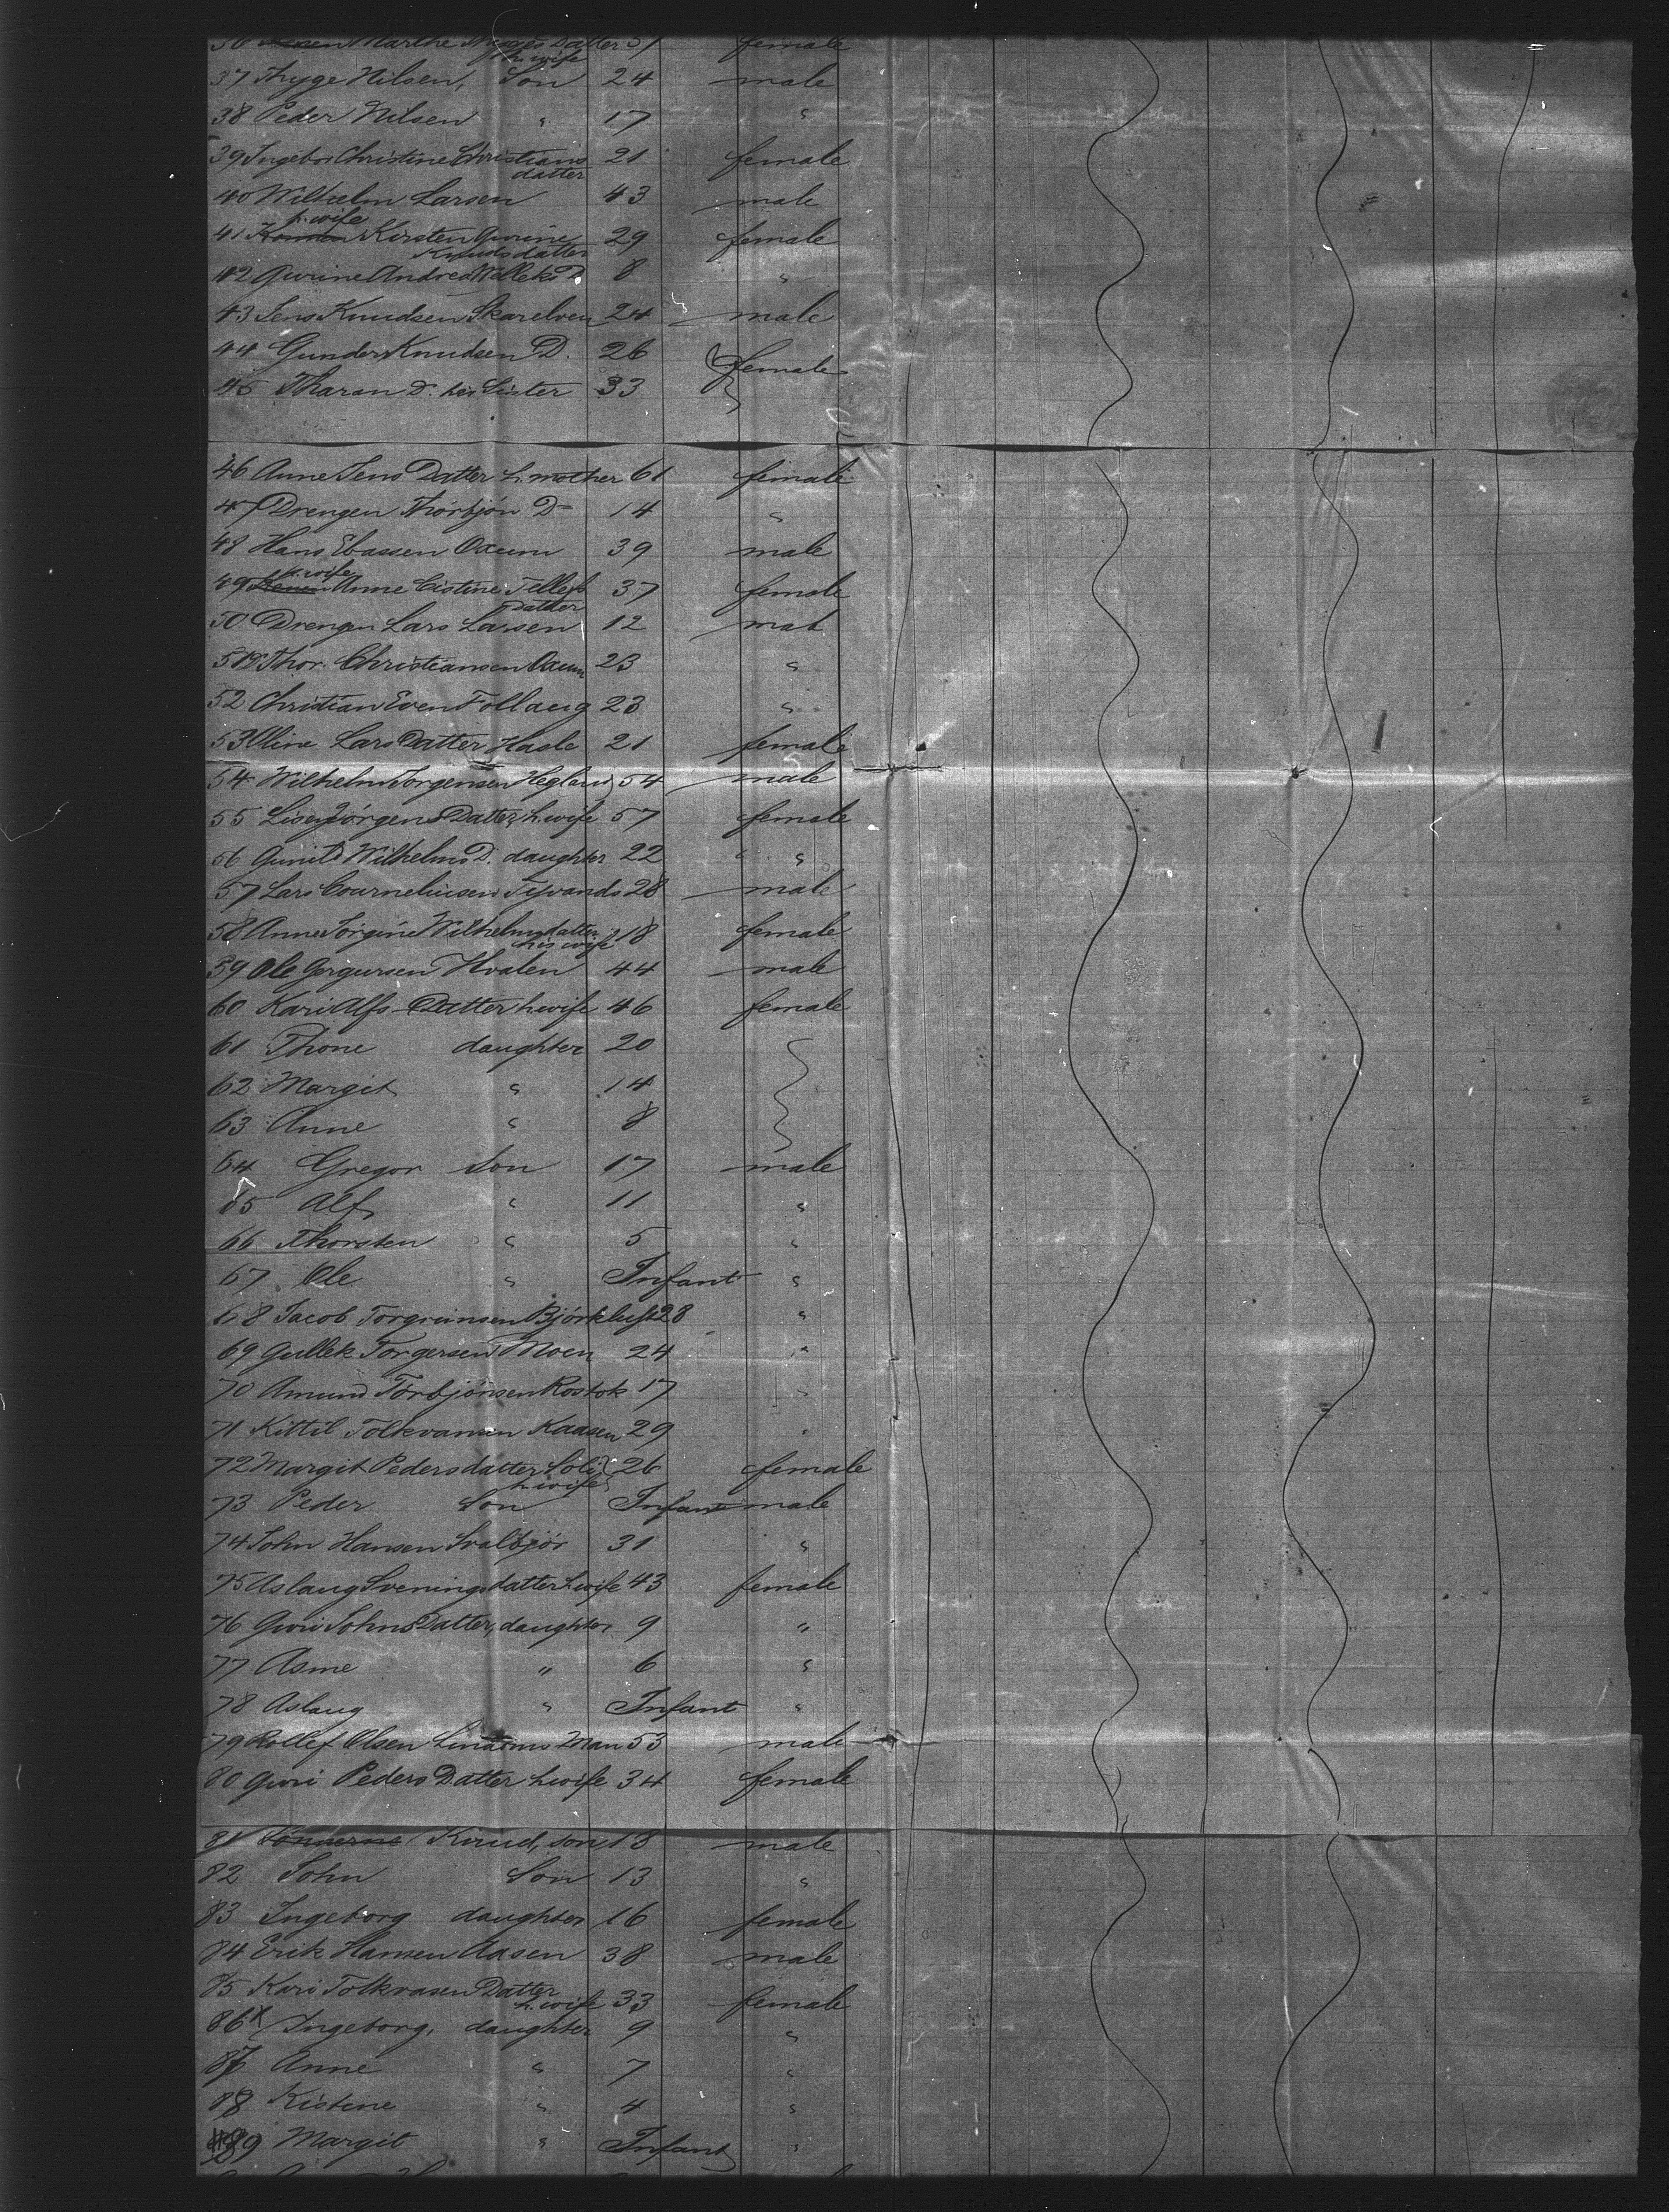 36 Marthe Datter 51 female
h. wife
37 Thyge Nilsen, Son 24 male
38 Peder Nilsen " 17 "
39 Ingebor Christine Christians 21 female
datter
40 Wilhelm Larsen 43 male
h. wife
41 Konen Kirsten Gurine 29 female
Knudsdatter
42 Gurine Andrea D. 8 "
43 Jens Knudsen Skarelven 24 male
44 Gunder Knudsen D. 26 female
45 Tharan D. her Sister 33
46 Anne Jens Datter h. mother 61 female
47 Drengen Thorbjön D 14 "
48 Hans Ebassen Oxum 39 male
h. wife
49 Konen Anne Cistine Tellefs 37 female
Datter
50 Drengen Lars Larsen 12 mal
51 Thor. Christiansen Oxum 23 "
52 Christian Even Follaug 23 "
53 Oline Lars Datter Hasle 21 female
54 Wilhelm Jorgensen Hegland 54 male
55 Lisen Jörgens Datter, h. wife 57 female
56 Gunild Wilhelms D. daughter 22 " "
57 Lars Courneliusen 28 male
58 Anne Jörgine Wilhelmsdatter 18 female
his wife
59 Ole Gergursen Hvalen 44 male
60 Kari Alfs Datter h. wife 46 female
61 Thone daughter 20
62 Margit " 14
63 Anne " 8
64 Gregor Son 17 male
65 Alf " 11 "
66 Thorsten " 5 "
67 Ole " Infant "
68 Jacob Torgrimsen 28 "
69 Gullek Torgersen Moen 24 "
70 Amund Torbjörnsen Rostok 17 "
71 Kittil Tolkvamen Kaasen 29 "
72 Margit Pedersdatter Loli 26 female
h. wife
73 Peder Son Infant male
74 John Hansen Svalbjör 31 "
75 Aslaug Sveningsdatter h. wife 43 female
76 Guri Johns Datter, daughter 9 "
77 Asme " 6 "
78 Aslaug " Infant "
79 Rollef Olsen 53 male
80 Guri Peders Datter h. wife 34 female
81 Sönnerne Knud, son 18 male
82 John Son 13 "
83 Ingeborg daughter 16 female
84 Erik Hansen Aasen 38 male
85 Kari Tolkvasen Datter 33 female
h. wife
86 x Ingeborg, daughter 9 "
87 Anne " 7 "
88 Kistine " 4 "
89 Margit " Infant "